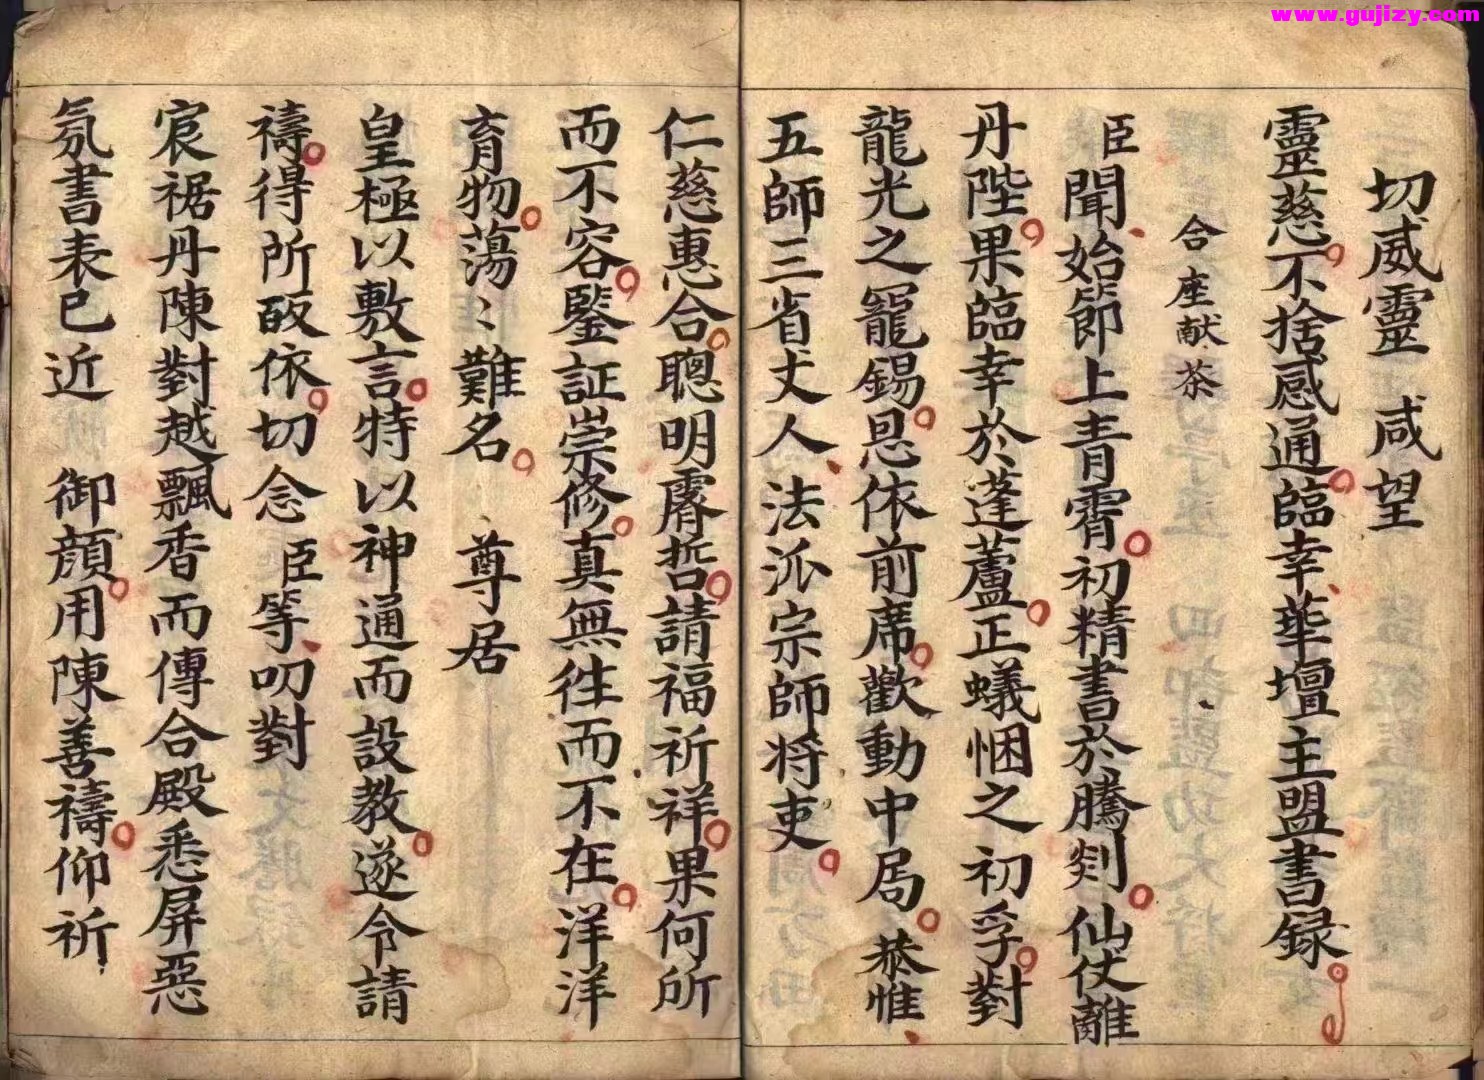 www.gujizy.com
切威靈 咸望
靈慈不捨感通臨幸華壇主盟書録
合座献茶
臣聞始節上青霄初精書於騰剡仙仗離
丹陛果臨幸於蓬蘆正蟻悃之初孚對
龍光之寵錫恩依前席歡動中局恭惟
五師三省丈人法派宗師将吏
仁慈惠合聰明睿哲請福祈祥果何所
而不容鑒証崇修真無徃而不在洋洋
育物蕩〻難名 尊居
皇極以敷言特以神通而設教遂令請
禱得所皈依切念 臣等叨對
宸裾丹陳對越飄香而傳合殿悉屏惡
氛書表已近 御顔用陳善禱仰祈